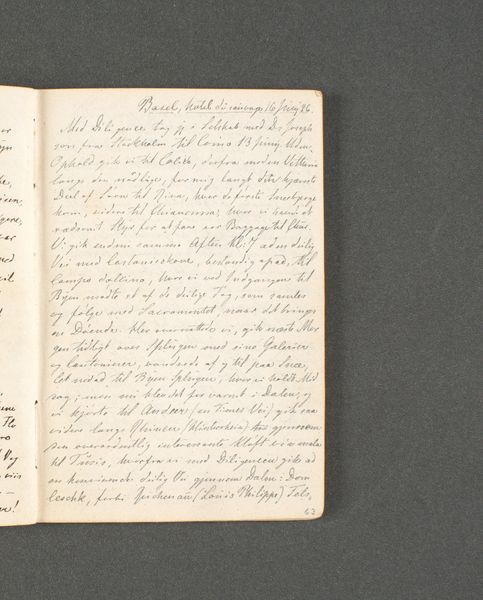 Basel, hotel du sauvage, 16 Juny 26.
Med Diligence tog jeg i Selskab med Dr Joseph
son fra Stockholm til Como 13 Juny. Uden
Ophold gik vi til Colico, derfra
langs den nødlige, for mig langt kjæreste
Deel af Søen til Riva, hvor de første Sneebjerge
kom, videre til Chiavenna, hvor vi
Kyr for at faae vor Baggage til Chur.
Vi gik endnu samme Aften Kl. 7 ad en deilig
Vei med Castanieskove, bestandig opad, til
Campo dolcino, hvor vi ved Indgangen til
Byen mødte et af de deilige Tog, som samles
og følge med Sacramentet, naar det bringes
en Døende. Her overnattede vi, gik næste Mor
gen tidligt over Splügen med sine Gallerier
og Cantonierer, vandrede af og til paa Snee,
let nedad til Byen Splügen, hvor vi holdt Mid
dag; men nu blev det for varmt i Dalen, og
vi kjørte til Andeer (en Times Vei), gik saa
videre langs Rhinen gjennem
den overordentlig interessante Kløft via mala
til Tusis, hvorfra vi med Diligencen gik ad
en henrivende deilig Vei gjennem Dalen: Dom
leschk, forbi Reichenau (Louis Philippe) Fels-
63